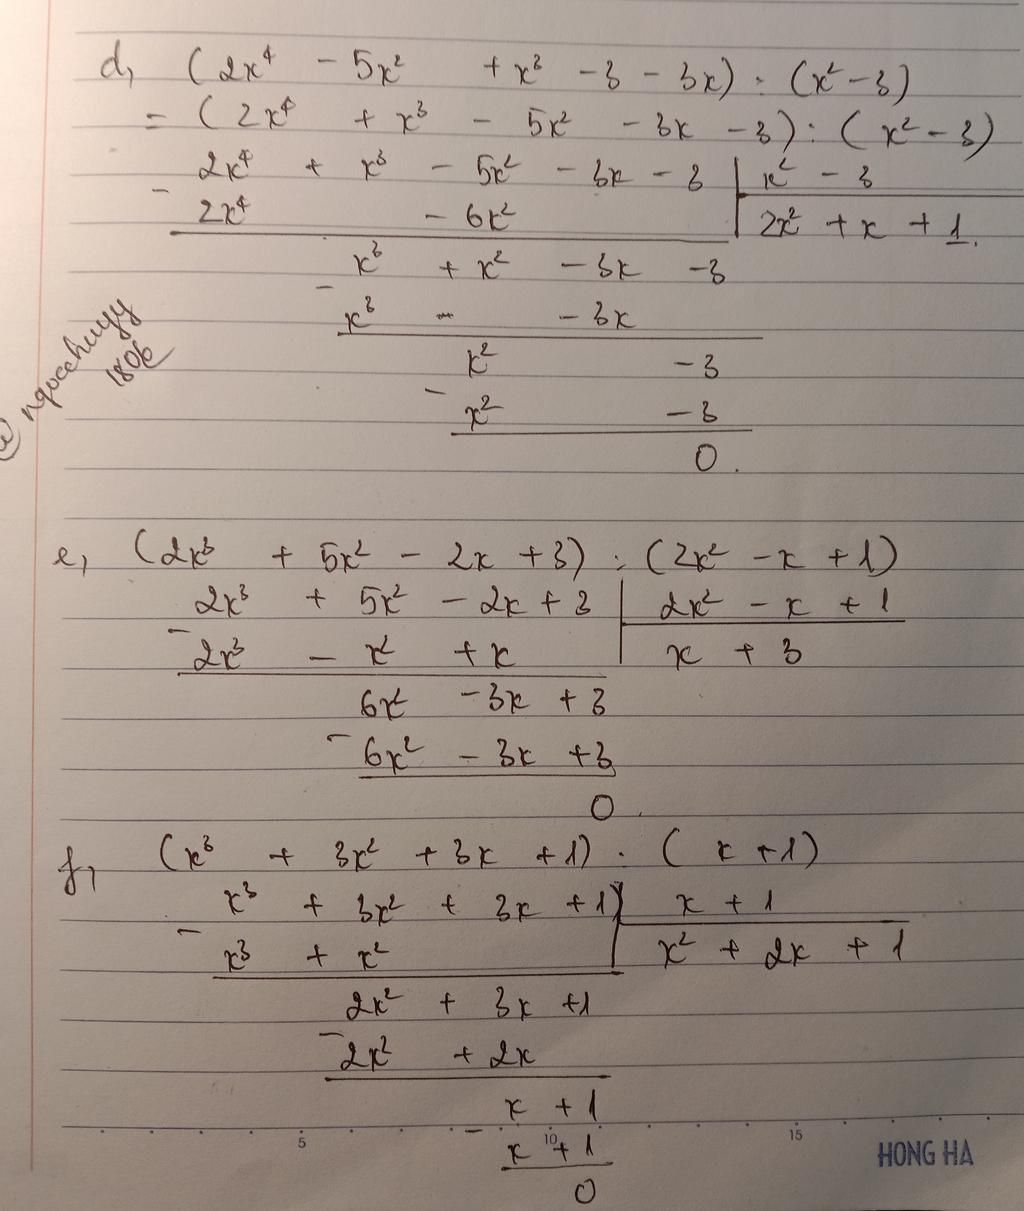 d, (2x⁴ - 5x² + x³ - 3 - 3x) : (x² - 3)
= (2x⁴ + x³ - 5x² - 3x - 3) : (x² - 3)
2x⁴ + x³ - 5x² - 3x - 3 | x² - 3
- 2x⁴ - 6x² | 2x² + x + 1.
x³ + x² - 3x - 3
- x³ - - 3x
x² - 3
- x² - 3
0.
@ngocchuyy
1806
e, (2x³ + 5x² - 2x + 3) : (2x² - x + 1)
2x³ + 5x² - 2x + 3 | 2x² - x + 1
- 2x³ - x² + x | x + 3
6x² - 3x + 3
- 6x² - 3x + 3
0.
f, (x³ + 3x² + 3x + 1) : (x + 1)
x³ + 3x² + 3x + 1) | x + 1
- x³ + x² | x² + 2x + 1
2x² + 3x + 1
- 2x² + 2x
x + 1
- x + 1
0
5 10 15
HONG HA